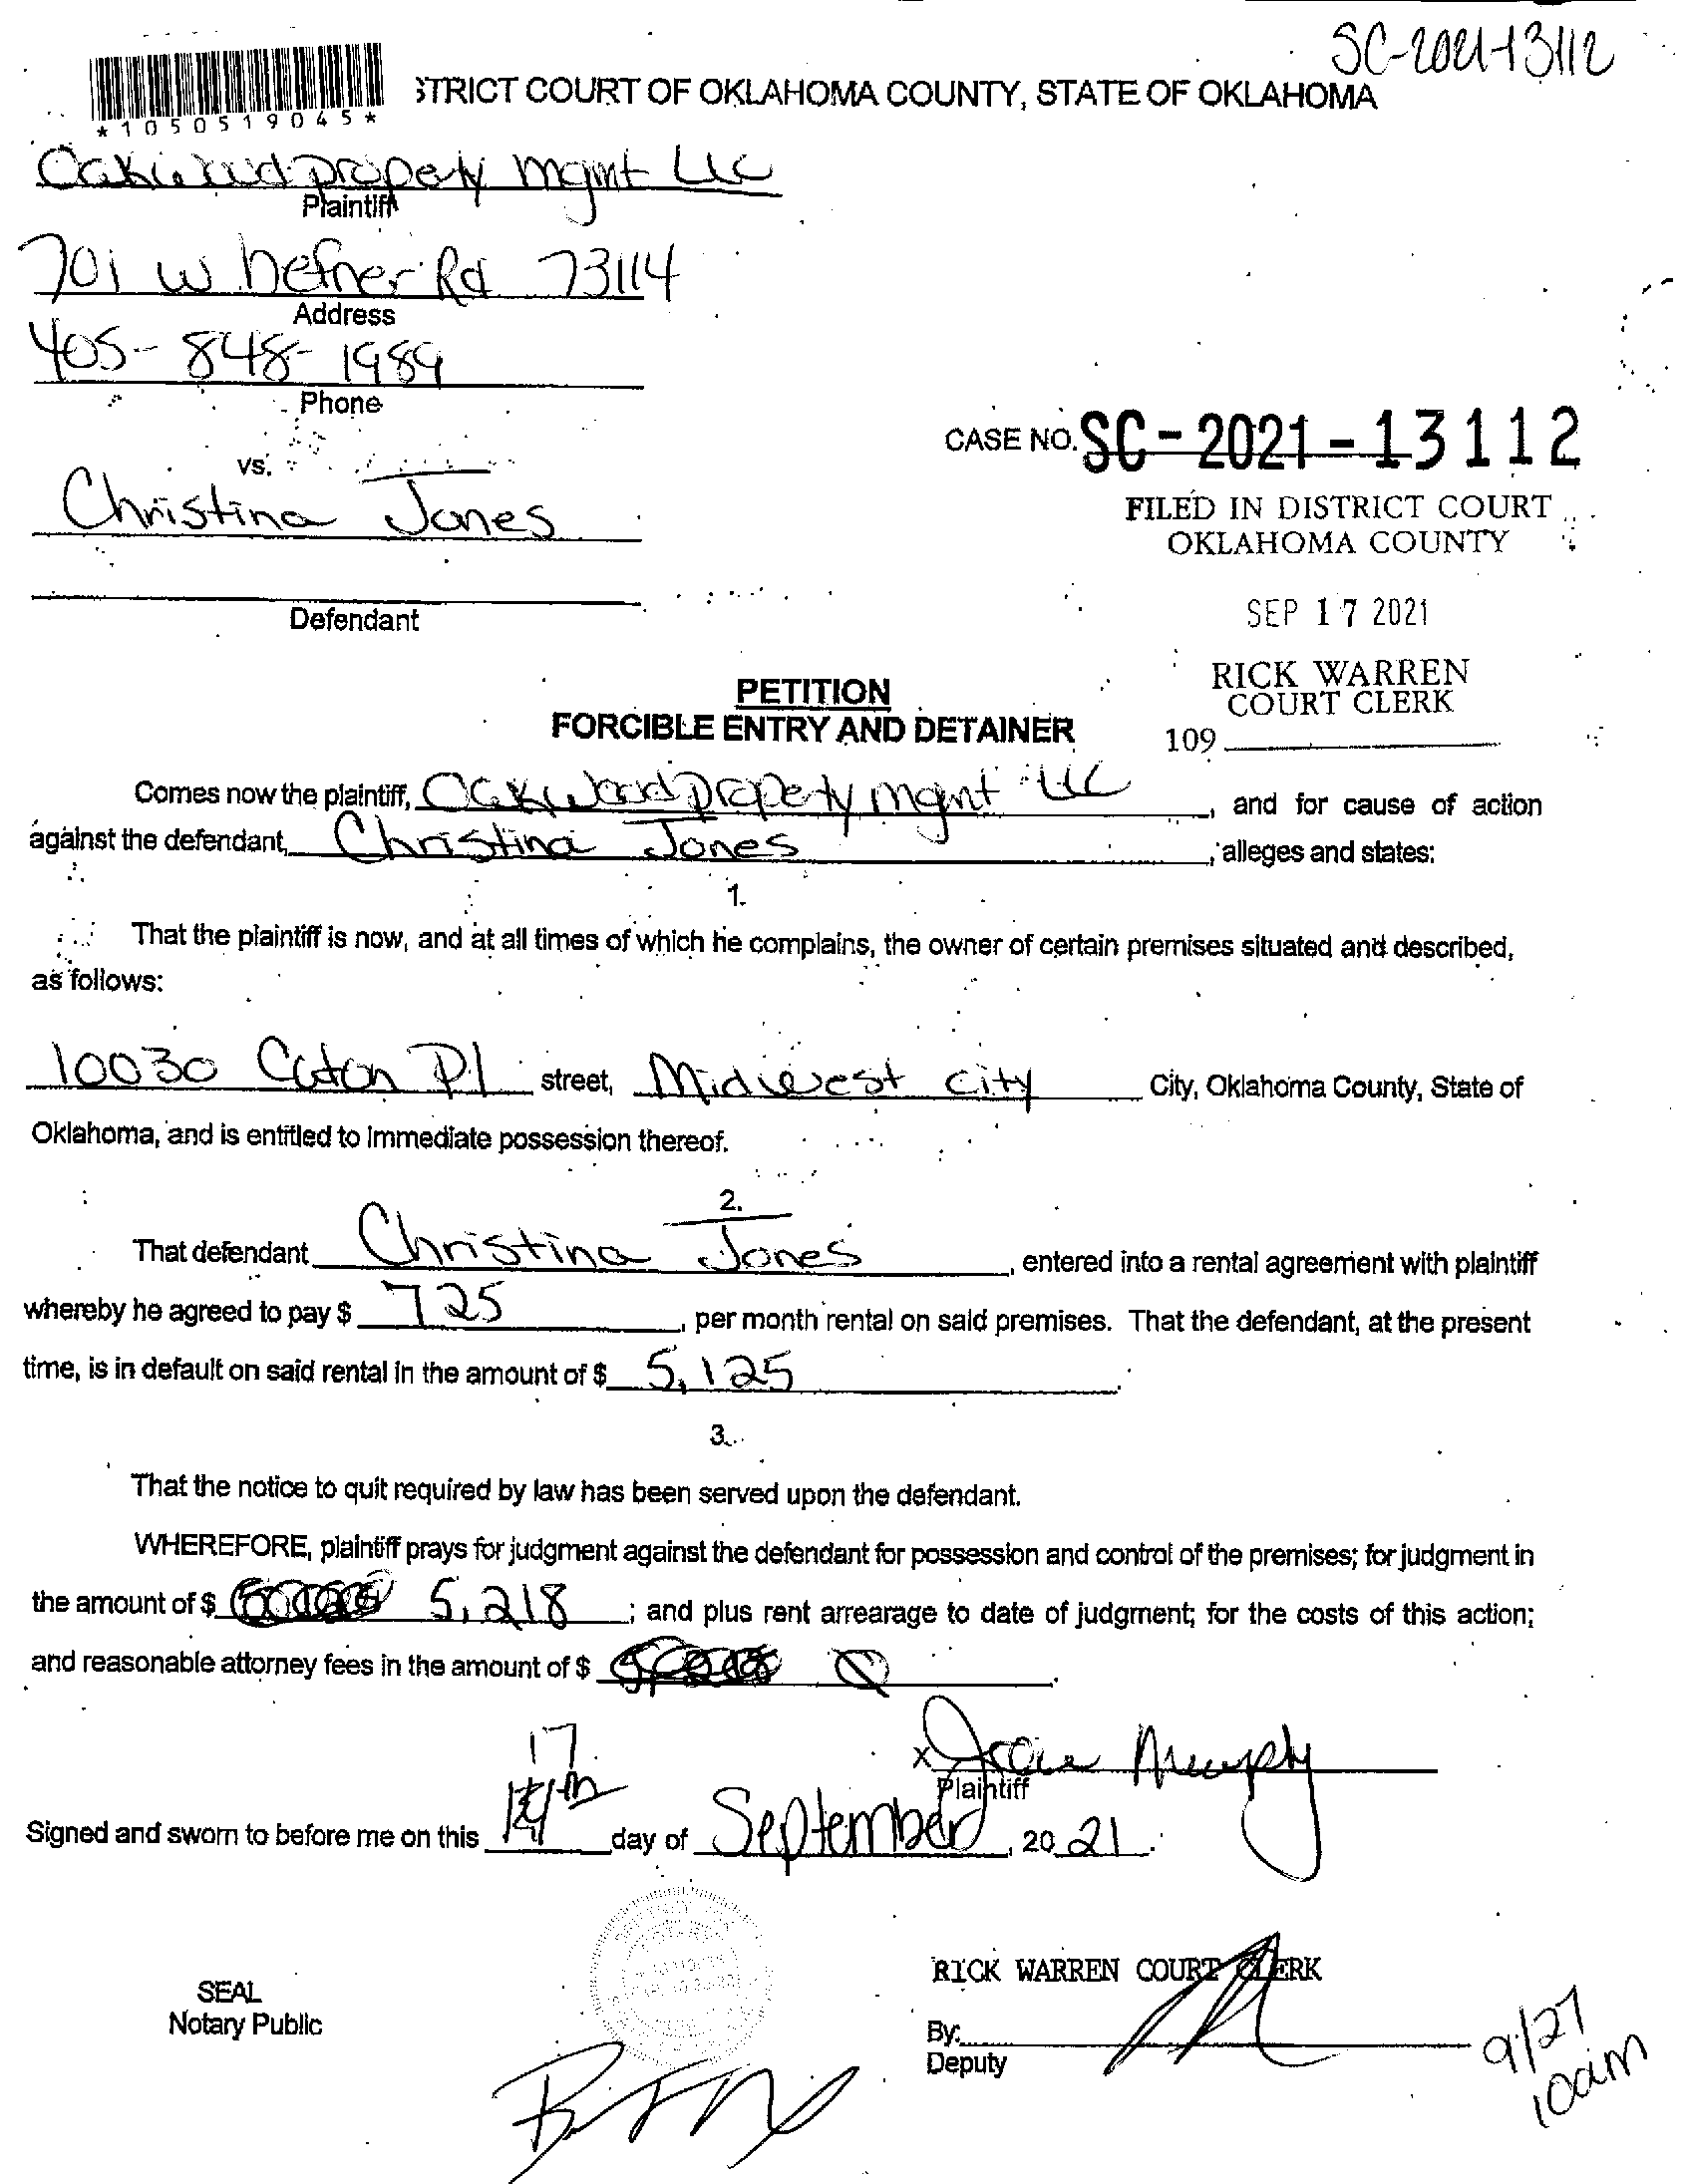 SC-2021-13112
*1050519045*
STRICT COURT OF OKLAHOMA COUNTY, STATE OF OKLAHOMA
Oakwood propety mgmt LLC
Plaintiff
701 w hefner Rd 73114
Address
405-848-1989
Phone
CASE NO. SC-2021-13112
vs.
Christina Jones
FILED IN DISTRICT COURT
OKLAHOMA COUNTY
Defendant
SEP 17 2021
RICK WARREN
COURT CLERK
109
PETITION
FORCIBLE ENTRY AND DETAINER
Comes now the plaintiff, Oakwood propety mgmt LLC, and for cause of action
against the defendant, Christina Jones, alleges and states:
1.
That the plaintiff is now, and at all times of which he complains, the owner of certain premises situated and described,
as follows:
10030 Caton Pl street, Midwest city City, Oklahoma County, State of
Oklahoma, and is entitled to immediate possession thereof.
2.
That defendant Christina Jones, entered into a rental agreement with plaintiff
whereby he agreed to pay $ 725, per month rental on said premises. That the defendant, at the present
time, is in default on said rental in the amount of $ 5,125.
3.
That the notice to quit required by law has been served upon the defendant.
WHEREFORE, plaintiff prays for judgment against the defendant for possession and control of the premises; for judgment in
the amount of $ 5,218; and plus rent arrearage to date of judgment; for the costs of this action;
and reasonable attorney fees in the amount of $
x Murphy
Plaintiff
17
Signed and sworn to before me on this th day of September, 2021.
RICK WARREN COURT CLERK
SEAL
Notary Public
By:
Deputy
9/27
10am